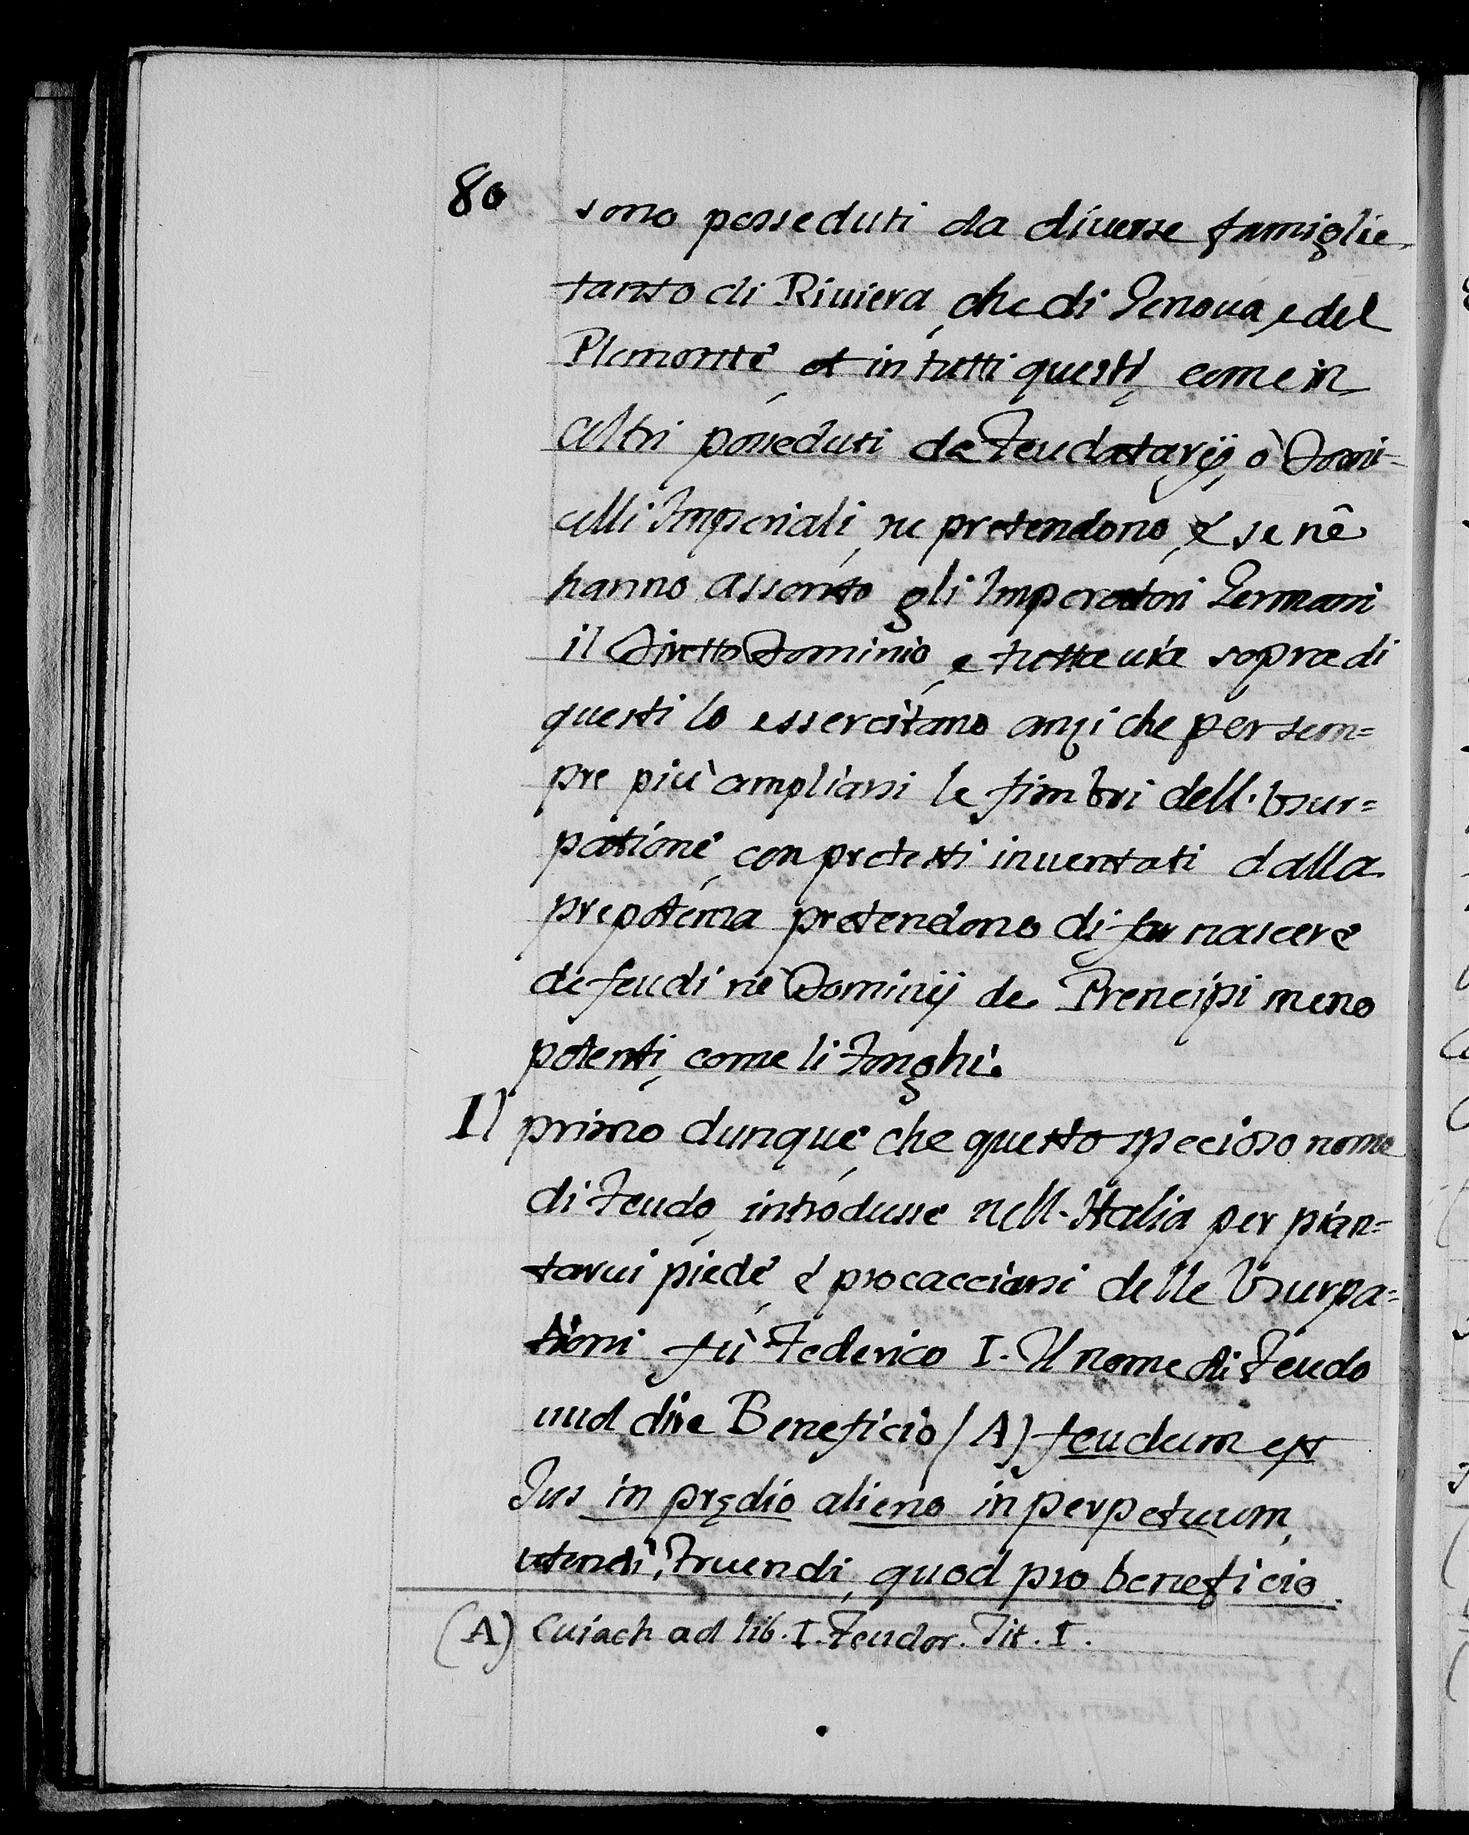 80
sono posseduti da diuerse famiglie
tanto di Riuiera, che di Genoua, e del
Piemonte, et in tutti questi, come in
altri posseduti da Feudatarij, ò Domi-
celli Imperiali, ne pretendono, e se nê
hanno assonto gli Imperatori Germani
il Diretto Dominio, e tutta uia sopra di
questi lo essercitano anzi che per sem=
pre più ampliarsi le fimbri dell. Vsur=
patione, con pretesti inuentati dalla
prepotenza pretendono di far nascere
de feudi ne Dominij de Prencipi meno
potenti, come li fonghi.
Il primo dunque, che questo specioso nome
di Feudo, introdusse nell. Italia per pian=
tarui piede, è procacciarsi delle Vsurpa=
tioni fù Federico I. Il nome di Feudo
uuol dire Beneficio (A) feudum est
Ius in prędio alieno in perpetuum,
utendi, fruendi, quod pro beneficio
(A) Cuiach ad lib. I. Feudor. Tit. I.